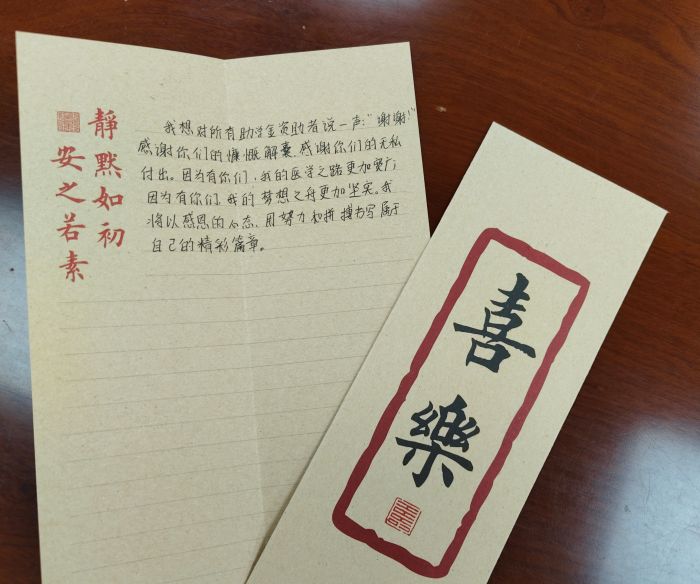 靜默如初
安之若素
我想对所有助学金资助者说一声："谢谢！"
感谢你们的慷慨解囊，感谢你们的无私
付出。因为有你们，我的医学之路更加宽广，
因为有你们，我的梦想之舟更加坚实。我
将以感恩的心态，用努力和拼搏书写属于
自己的精彩篇章。
喜樂